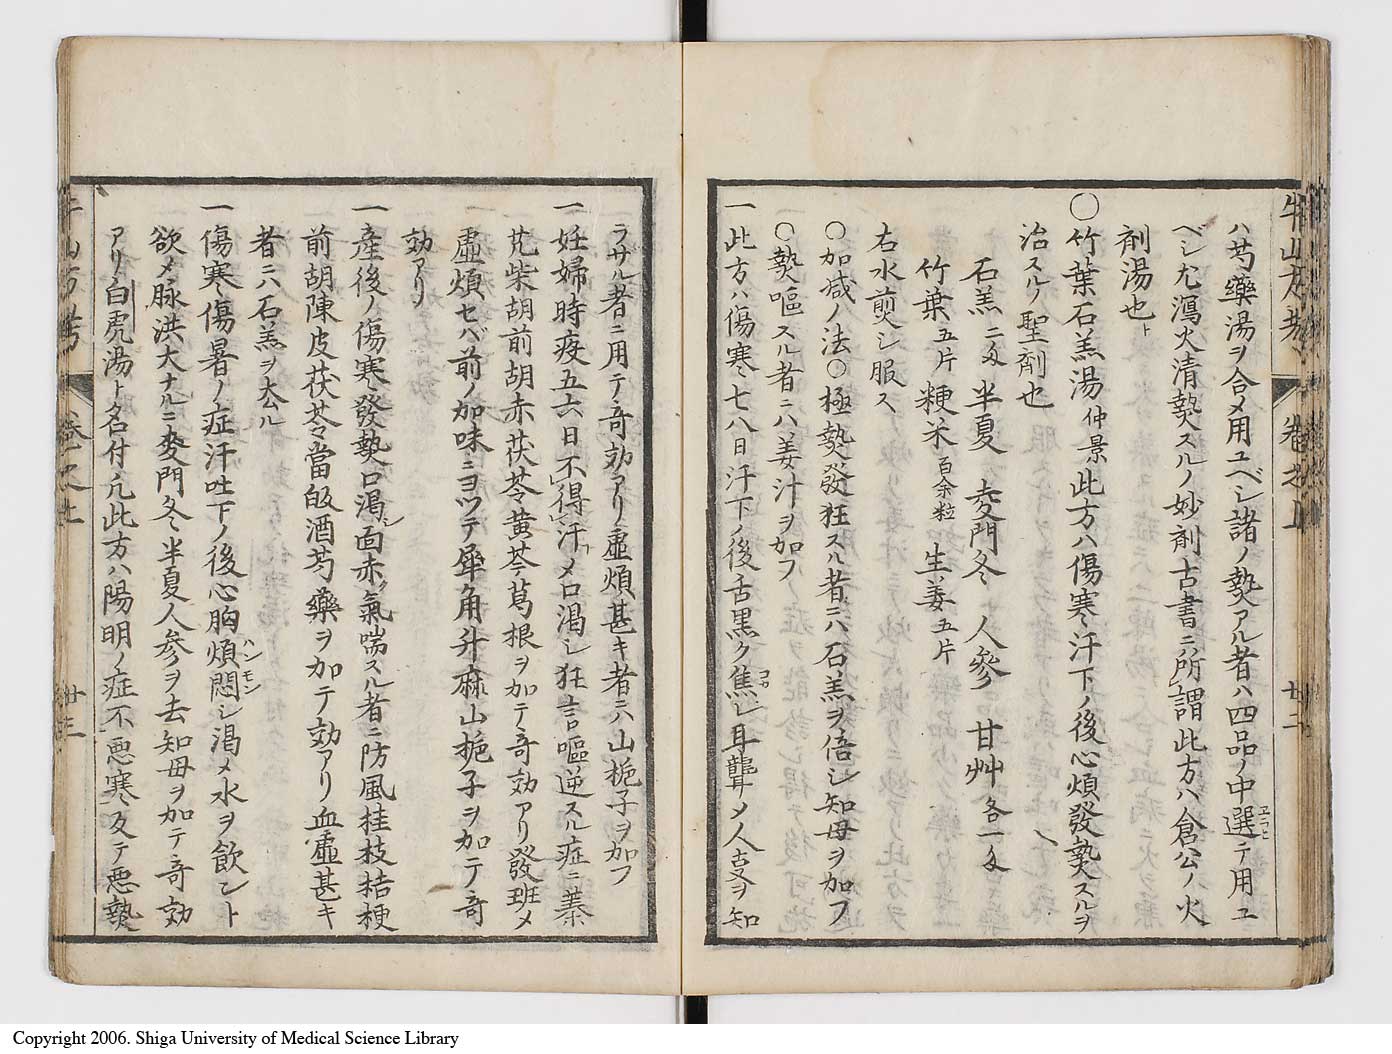 ハ芍藥湯ヲ合メ用ユベシ諸ノ𤍠アル者ハ四品ノ中選テ用ユ
エラヒ
ベシ尤瀉火清𤍠スルノ妙剤古書ニ所謂此方ハ倉公ノ火
剤湯也ト
〇竹葉石羔湯 仲景 此方ハ傷寒汗下ノ後心煩發𤍠スルヲ
治スルノ聖剤也
石羔 二匁 半夏 麦門冬 人參 甘艸 各一匁
竹葉 五片 粳米 百余粒 生姜 五片
右水煎シ服ス
〇加减ノ法〇極𤍠發狂スル者ニハ石羔ヲ倍シ知母ヲ加フ
〇𤍠嘔スル者ニハ姜汁ヲ加フ
一此方ハ傷寒七八日汗下ノ後舌黒ク焦レ耳聾メ人事ヲ知
コカ
牛山方考 卷之上 廿二
ラサル者ニ用テ奇効アリ虚煩甚キ者ニハ山梔子ヲ加フ
一妊婦時疫五六日不得汗メ口渇シ狂言嘔逆スル症ニ蓁
艽柴胡前胡赤茯苓黄芩葛根ヲ加テ奇効アリ發斑メ
虚煩セバ前ノ加味ニヨツテ犀角升麻山梔子ヲ加テ奇
効アリ
一産後ノ傷寒發𤍠口渇シ面赤ク氣喘スル者ニ防風桂枝桔梗
前胡陳皮茯苓當皈酒芍藥ヲ加テ効アリ血虚甚キ
者ニハ石羔ヲ去ル
一傷寒傷暑ノ症汗吐下ノ後心胸煩悶シ渇メ水ヲ飲ント
ハンモン
欲メ脉洪大ナルニ麥門冬半夏人参ヲ去知母ヲ加テ奇効
アリ白虎湯ト名付凢此方ハ陽明ノ症不悪寒反テ悪𤍠
牛山方考 卷之上 廿三
Copyright 2006. Shiga University of Medical Science Library